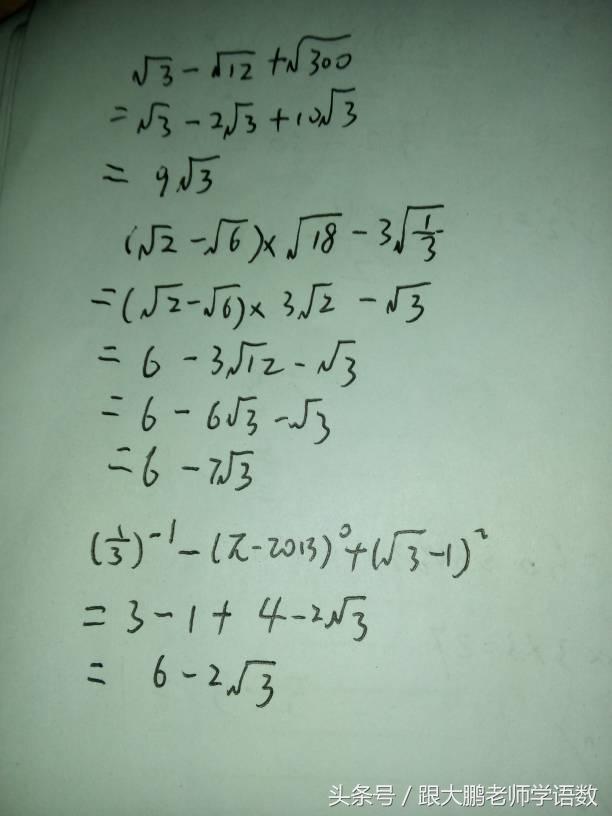 √3 - √12 + √300
= √3 - 2√3 + 10√3
= 9√3
(√2 - √6) × √18 - 3√(1/3)
= (√2 - √6) × 3√2 - √3
= 6 - 3√12 - √3
= 6 - 6√3 - √3
= 6 - 7√3
(1/3)⁻¹ - (π - 2013)⁰ + (√3 - 1)²
= 3 - 1 + 4 - 2√3
= 6 - 2√3
头条号 / 跟大鹏老师学语数